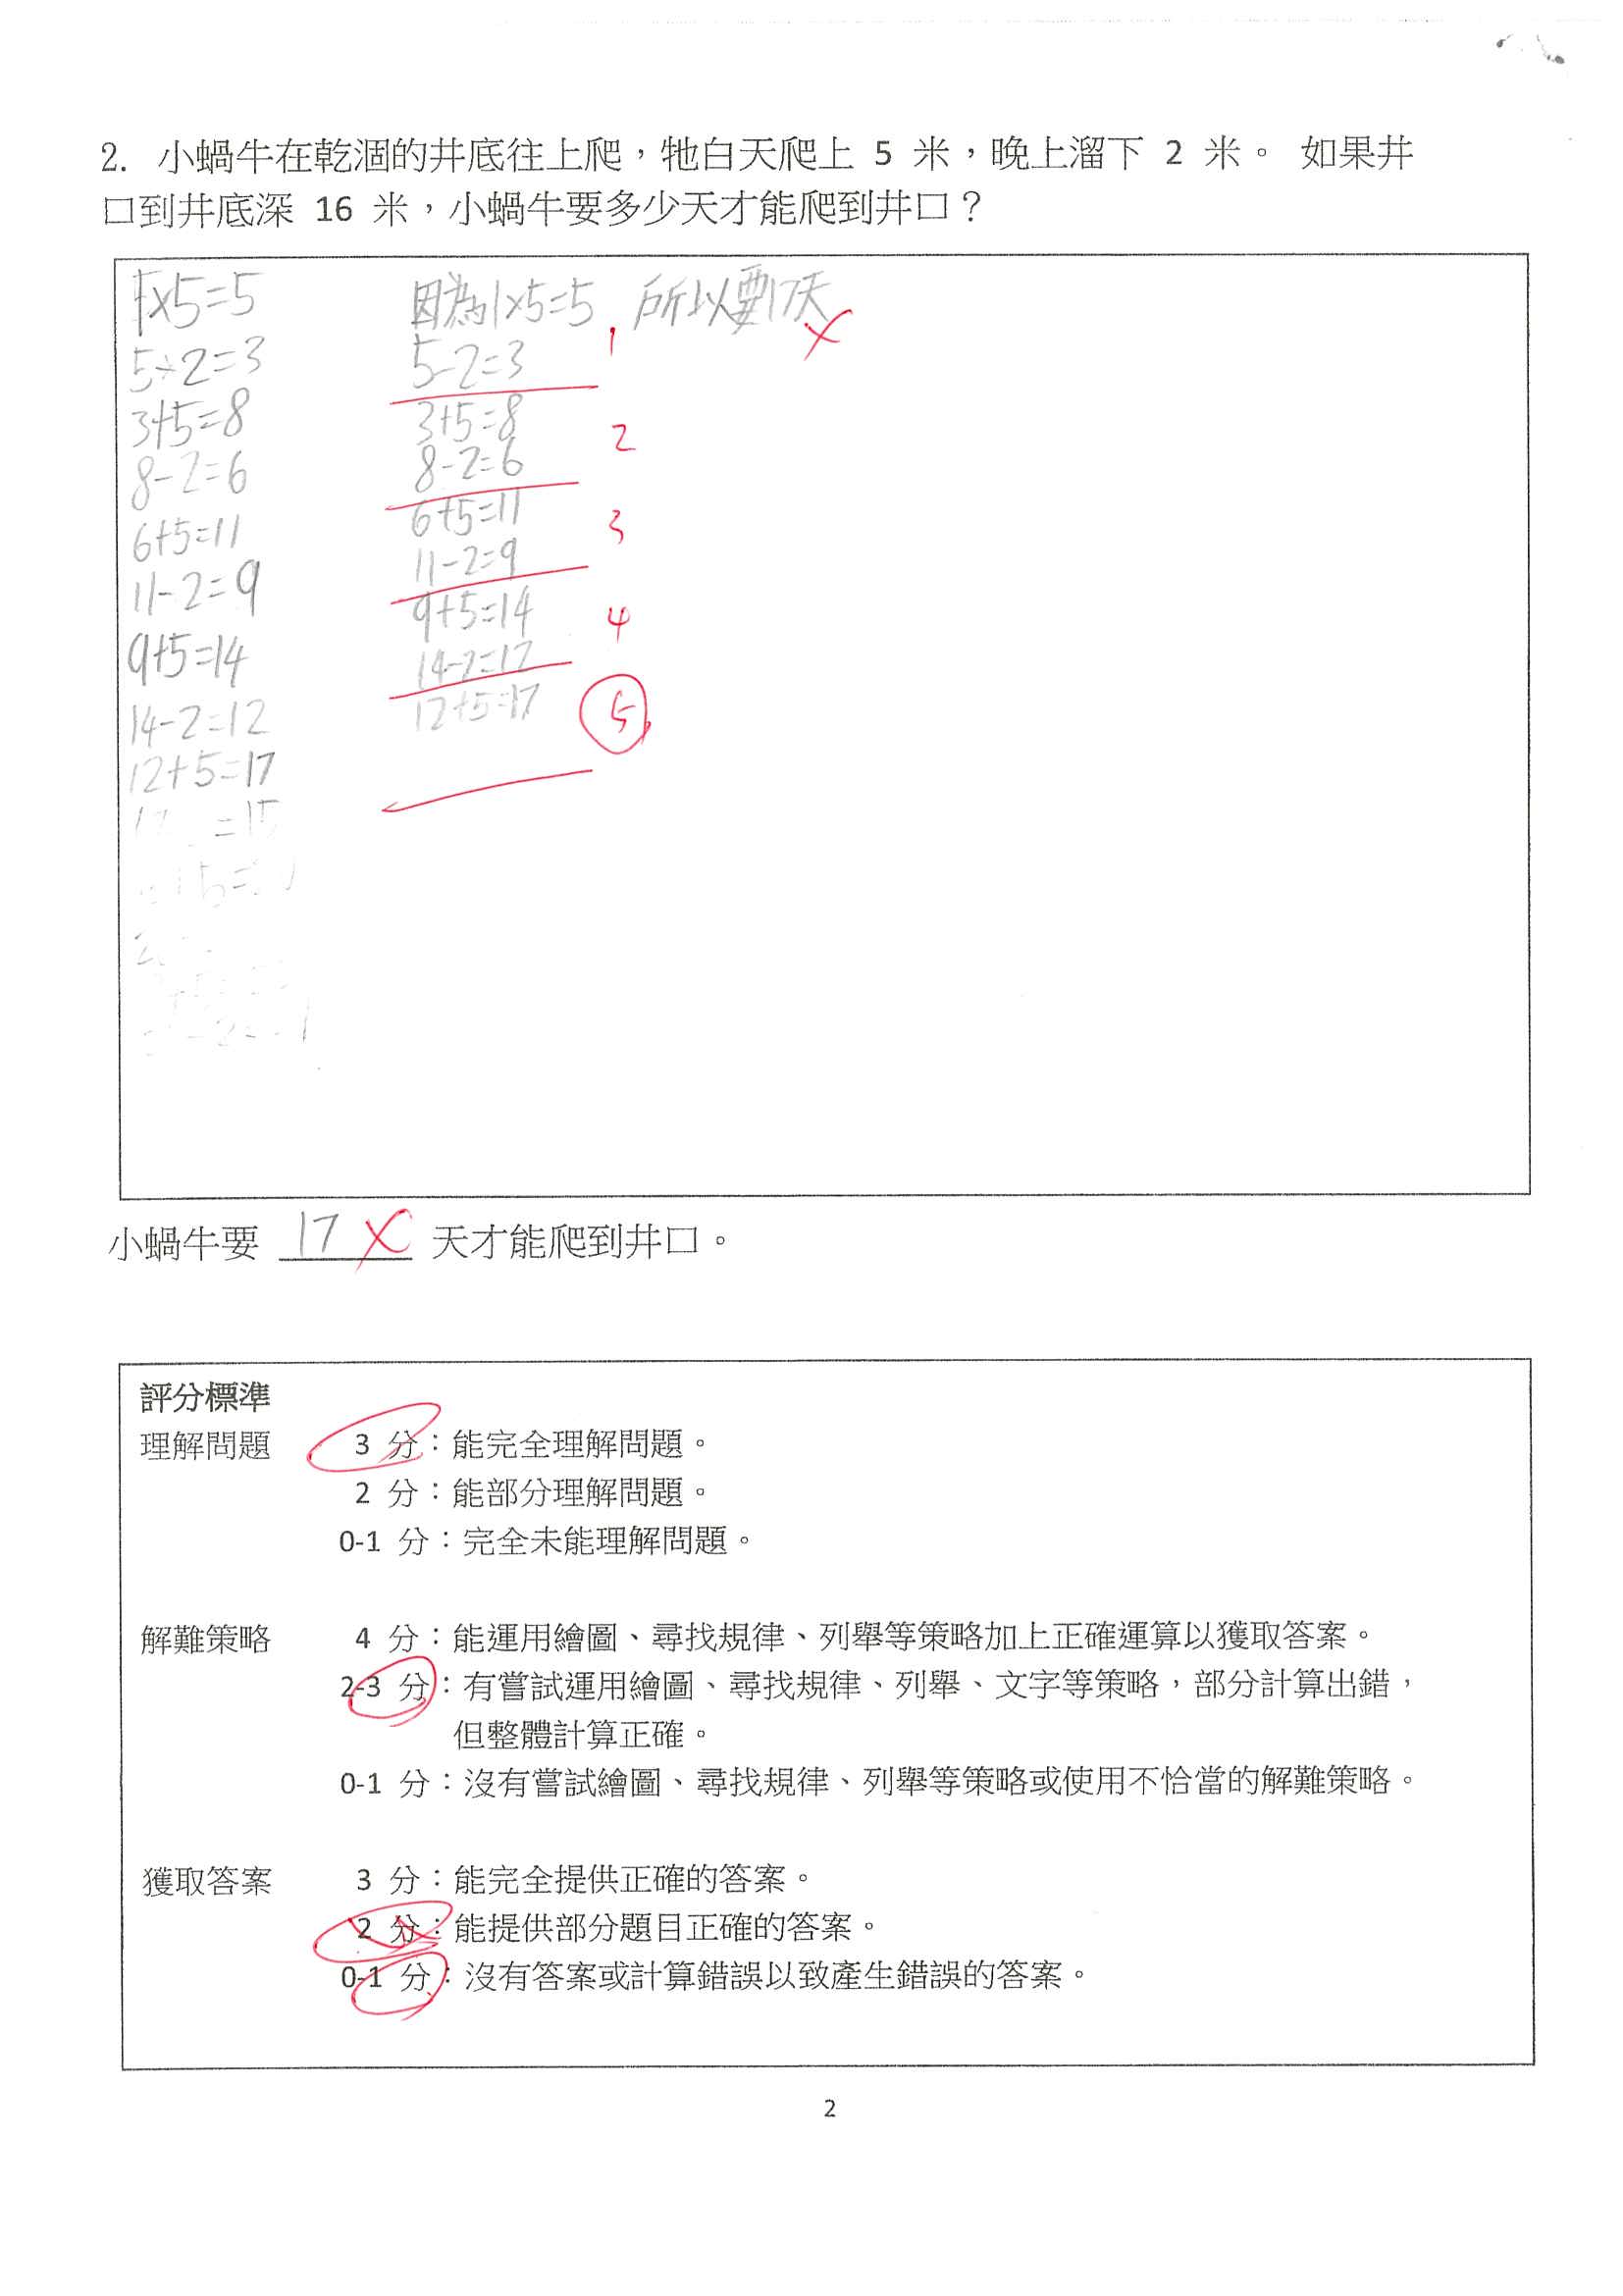 2. 小蝸牛在乾涸的井底往上爬，牠白天爬上 5 米，晚上溜下 2 米。 如果井
口到井底深 16 米，小蝸牛要多少天才能爬到井口？
1×5=5
5-2=3
3+5=8
8-2=6
6+5=11
11-2=9
9+5=14
14-2=12
12+5=17
因為1×5=5 所以要17天
5-2=3 1
3+5=8
8-2=6 2
6+5=11
11-2=9 3
9+5=14
14-2=12 4
12+5=17 5
小蝸牛要 17 天才能爬到井口。
評分標準
理解問題 3 分：能完全理解問題。
2 分：能部分理解問題。
0-1 分：完全未能理解問題。
解難策略 4 分：能運用繪圖、尋找規律、列舉等策略加上正確運算以獲取答案。
2-3 分：有嘗試運用繪圖、尋找規律、列舉、文字等策略，部分計算出錯，
但整體計算正確。
0-1 分：沒有嘗試繪圖、尋找規律、列舉等策略或使用不恰當的解難策略。
獲取答案 3 分：能完全提供正確的答案。
2 分：能提供部分題目正確的答案。
0-1 分：沒有答案或計算錯誤以致產生錯誤的答案。
2